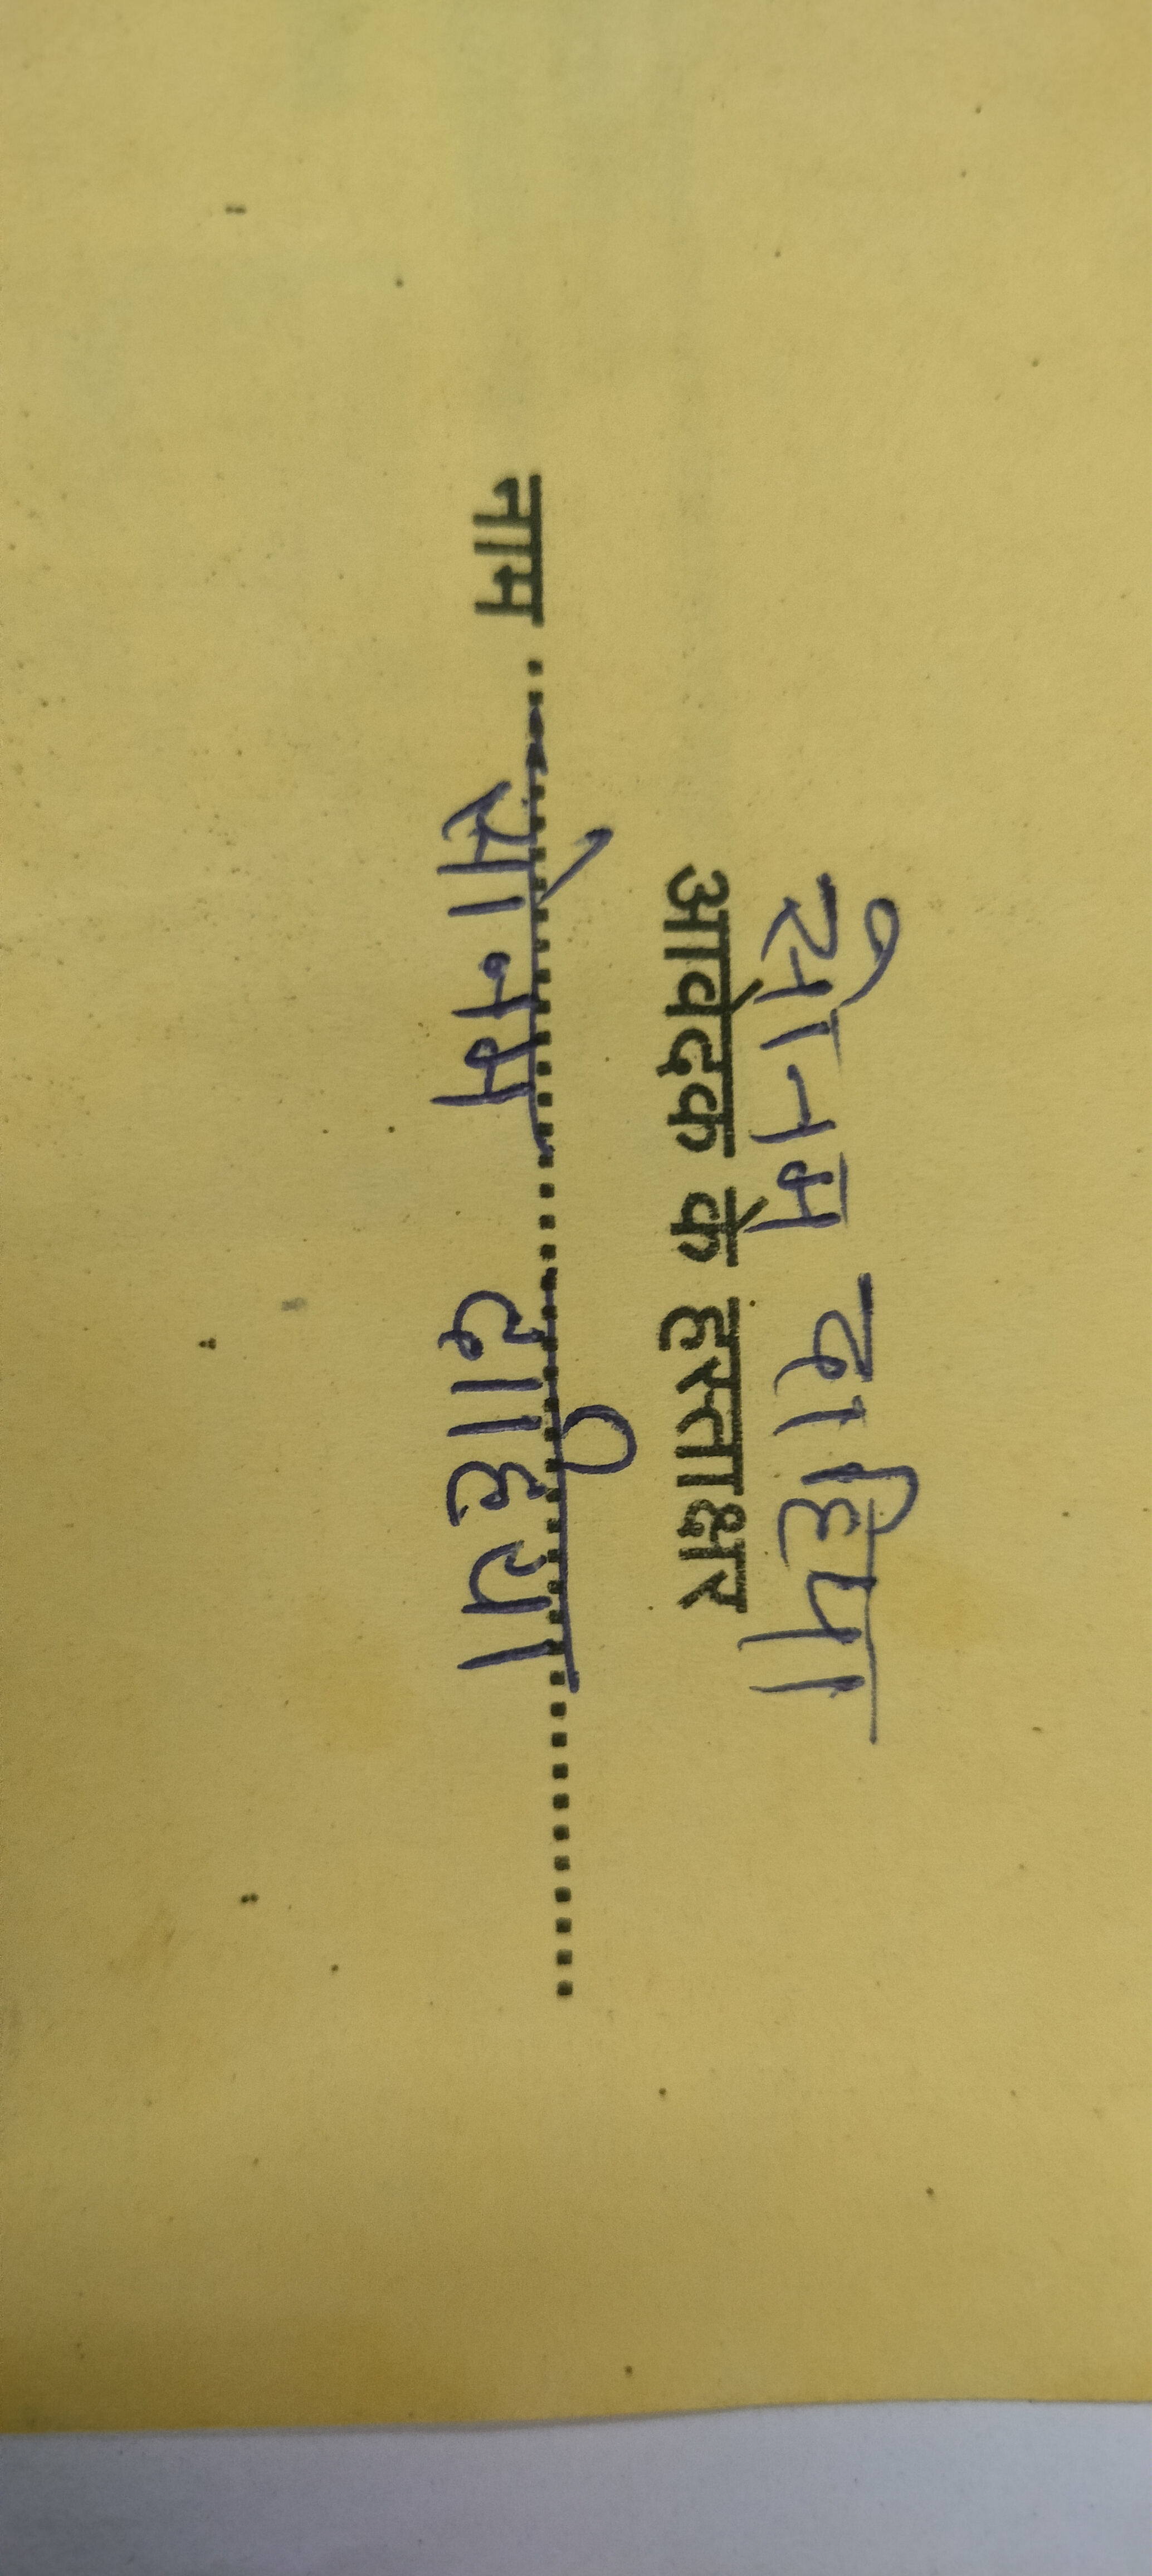 सोनम दाहिया
आवेदक के हस्ताक्षर
नाम ........ सोनम दाहिया ........